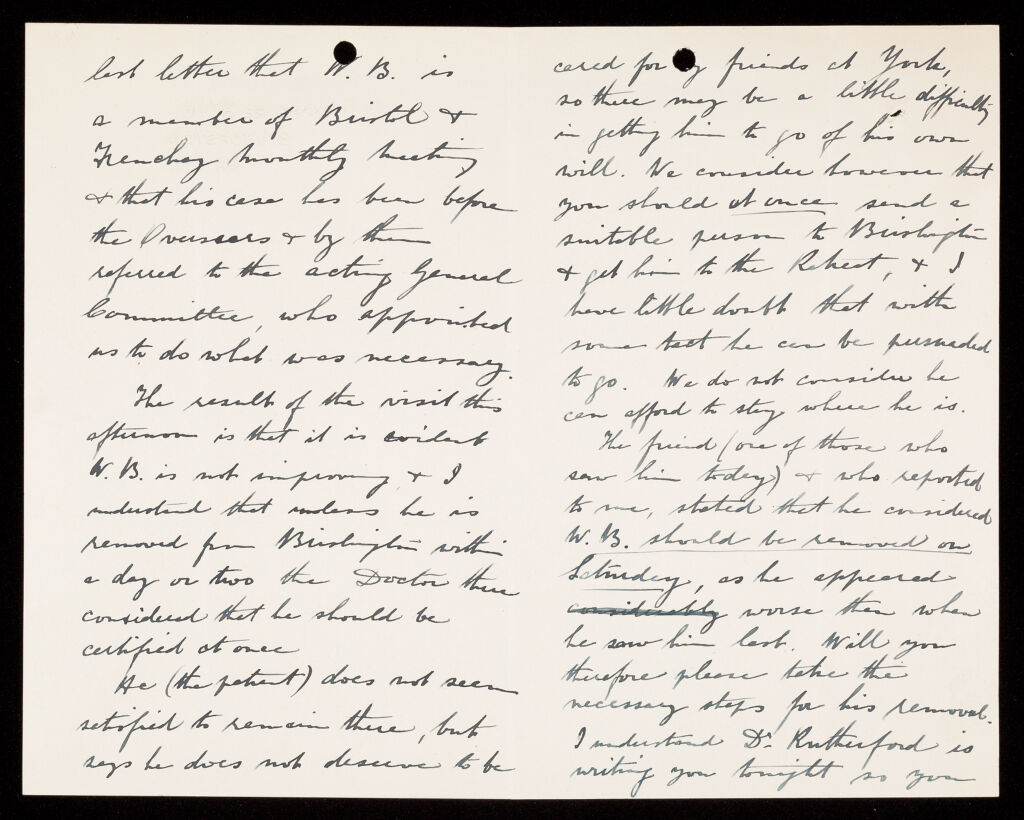 last letter that W. B. is
a member of Bristol &
Frenchay Monthly Meeting
& that his case has been before
the Overseers & by them
referred to the acting General
Committee, who appointed
us to do what was necessary.
The result of the visit this
afternoon is that it is evident
W. B. is not improving & I
understand that unless he is
removed from Brislington within
a day or two the Doctor there
considered that he should be
certified at once
He (the patient) does not seem
satisfied to remain there, but
says he does not deserve to be
cared for by friends at York,
so there may be a little difficulty
in getting him to go of his own
will. We consider however that
you should at once send a
suitable person to Brislington
& get him to the Retreat, & I
have little doubt that with
some tact he can be persuaded
to go. We do not consider he
can afford to stay where he is.
The friend (one of those who
saw him today) & who reported
to me, stated that he considered
W. B. should be removed on
Saturday, as he appeared
considerably worse than when
he saw him last. Will you
therefore please take the
necessary steps for his removal.
I understand Dr. Rutherford is
writing you tonight so you